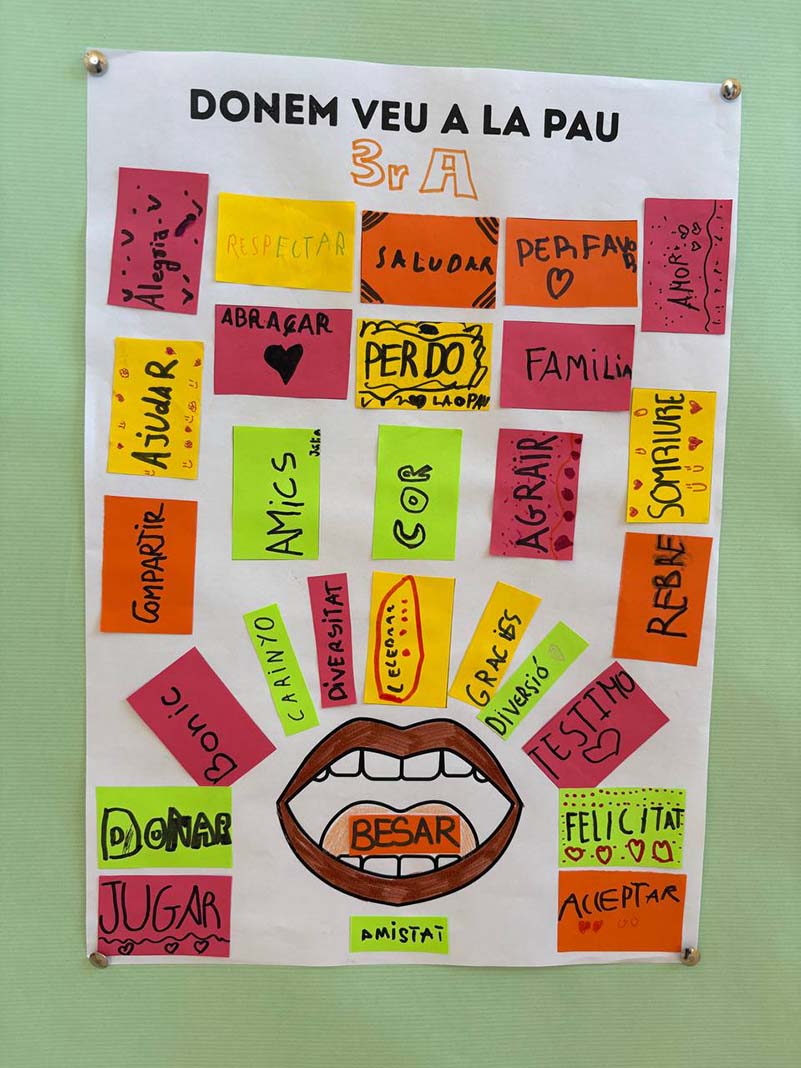 DONEM VEU A LA PAU
3r A
Alegria
RESPECTAR
SALUDAR
PER FAVOR
AMOR
ABRAÇAR
PERDO
LA PAU
FAMILIA
AJUDAR
AMICS
COR
AGRAIR
SOMRIURE
COMPARTIR
REBRE
CARINYO
DIVERSITAT
CELEBRAR
GRACIES
DIVERSIÓ
BONIC
TESTIMO
DONAR
BESAR
FELICITAT
JUGAR
ACCEPTAR
AMISTAT